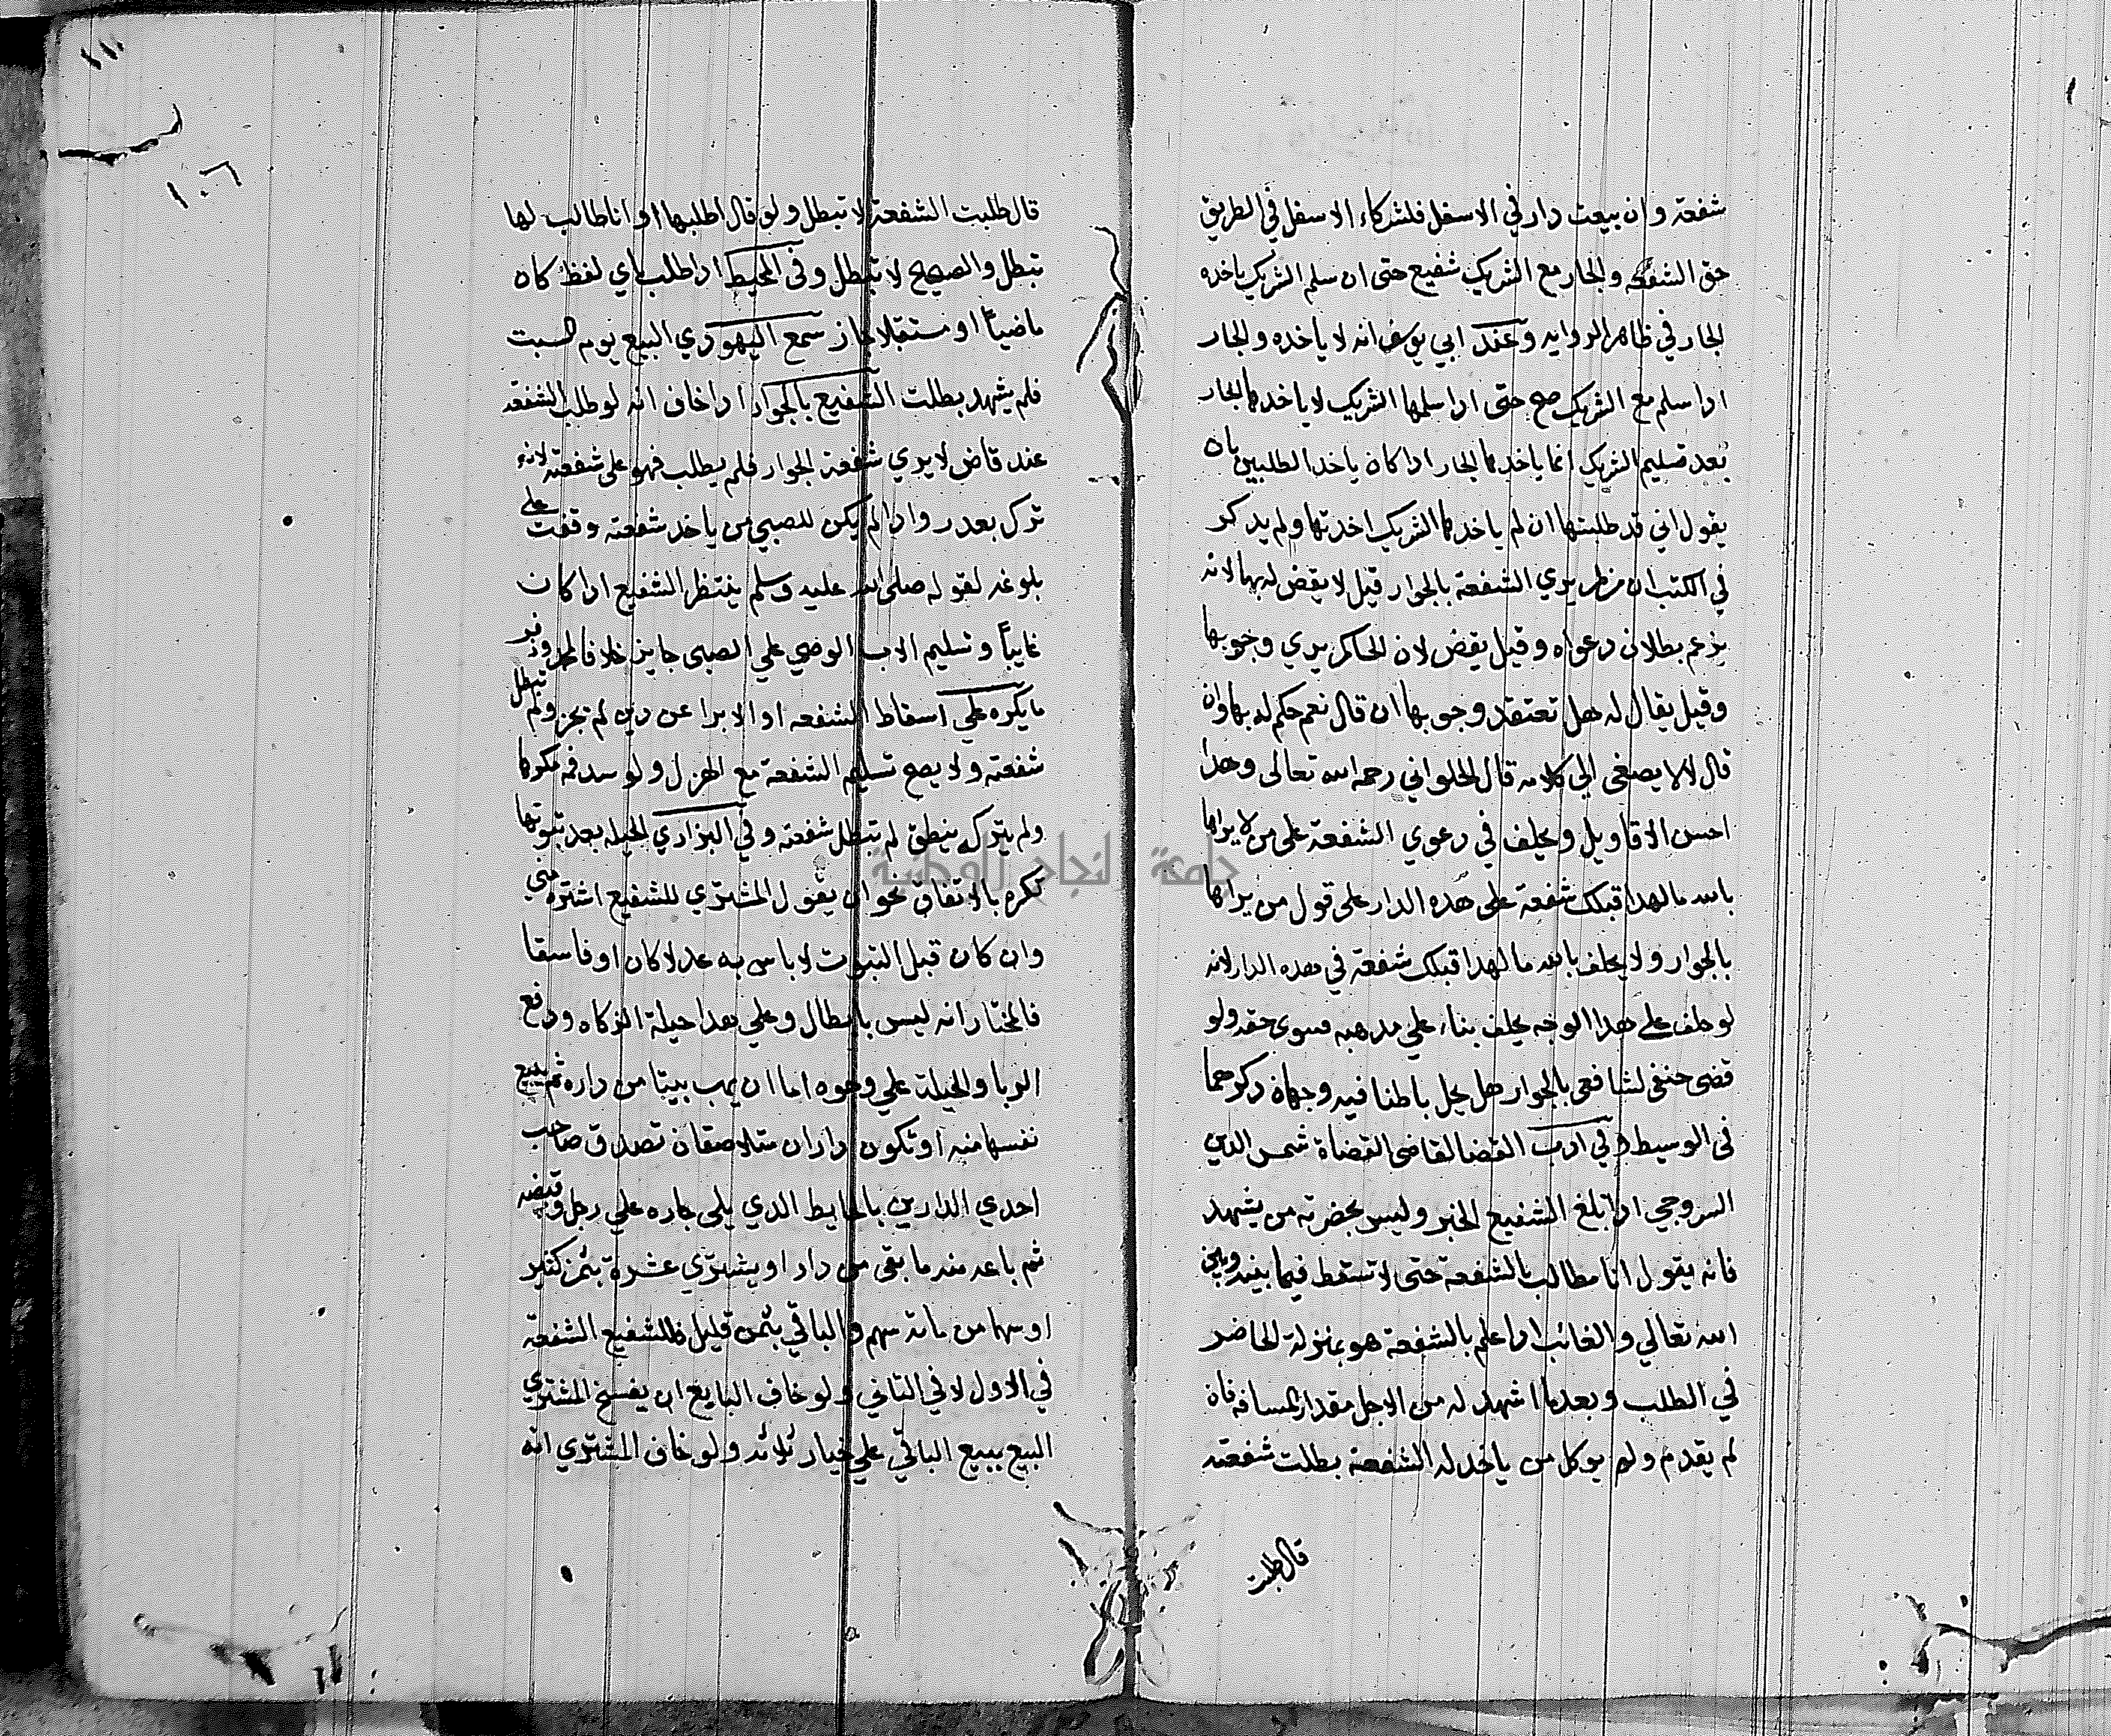 شفعة وان بيعت دار في الاسفل فلشركاء الاسفل في الطريق
حق الشفعة والجار مع الشريك شفيع حتى ان سلم الشريك ياخده
الجار في ظاهر الروايه وعند ابي يوسف انه لا ياخده والجار
ادا سلم مع الشريك صح حتى ادا سلمها الشريك لا ياخدها الجار
بعد تسليم الشريك انما ياخدها الجار ادا كان ياخد الطلبين بان
يقول اني قد طلبتها ان لم ياخدها الشريك اخدتها ولم يدكر
في الكتب ان من لم يري الشفعة بالجوار قيل لا يقض له بها لانه
يزعم بطلان دعواه وقيل يقض لان الحاكم يري وجوبها
وقيل يقال له هل تعتقد وجوبها ان قال نعم حكم له بها وان
قال لا لا يصغى الي كلامه قال الحلواني رحمه الله تعالى وهدا
احسن الاقاويل ويحلف في دعوي الشفعة على من لا يراها
بالله ما لهدا قبلك شفعة على هده الدار على قول من يراها
بالجوار ولا يحلف بالله ما لهدا قبلك شفعة في هده الدار لانه
لو حلف علے هدا الوجه يحلف بناء علي مدهبه فسوى حقه ولو
قضى حنفى لشافعى بالجوار هل يحل باطنا فيه وجهان دكرهما
فى الوسيط وفي ادب القضا لقاضى القضاة شمس الدين
السروجي ادا بلغ الشفيع الخبر وليس بحضرته من يشهد
فانه يقول انا مطالب بالشفعة حتى لا تسقط فيما بينه وبين
الله تعالي والغائب ادا علم بالشفعة هو بمنزلة الحاضر
في الطلب وبعد ما اشهد له من الاجل مقدار المسافه فان
لم يقدم ولم يوكل من ياخد له الشفعة بطلت شفعته
قال طلبت
١١٠
١٠٦
قال طلبت الشفعة لا تبطل ولو قال اطلبها او انا طالب لها
تبطل والصحيح لا تبطل وفى المحيط ادا طلب باي لفظ كان
ماضياً او مستقبلا جاز سمع اليهودي البيع يوم السبت
فلم يشهد بطلت الشفيع بالجوار ادا خاف انه لو طلب الشفعة
عند قاض لا يري شفعة الجوار فلم يطلب فهو على شفعته لانه
ترك بعدر وادا لم يكن للصبي من ياخد شفعته وقفت علے
بلوغه لقوله صلى الله عليه وسلم ينتظر الشفيع ادا كان
غايباً وتسليم الاب الوضي علي الصبى جايز خلافا لمحمد وزفر
ما يكره علي اسقاط الشفعه او الابرا عن دين لم يجز ولم تبطل
شفعته ولا يصح تسليم الشفعة مع الهزل ولو سد فمه مكرها
ولم يترك ينطق لم تبطل شفعته وفي البزازي الحيله بعد ثبوتها
تكره بالاتفاق نحو ان يقول المشتري للشفيع اشتره مني
وان كان قبل الثبوت لا باس به عدلا كان او فاسقا
فالمختار انه ليس بابطال وعلي هدا حيلة الزكاه ودفع
الربا والحيلة علي وجوه اما ان يهب بيتا من داره ثم يبيع
نفسها منه او تكون داران متلاصقان تصدق صاحب
احدي الدارين بالحايط الدي يلى جاره علي رجل وقبضه
ثم باعه منه ما بقى من دار او يشتري عشرة بثمن كثير
او سهما من مائة سهم والباقي بثمن قليل فللشفيع الشفعة
في الاول لا في الثاني ولو خاف البايع ان يفسخ المشتري
البيع ببيع الباقي علي خيار ثلاثه ولو خاف المشتري انه
جامعة النجاح الوطنية